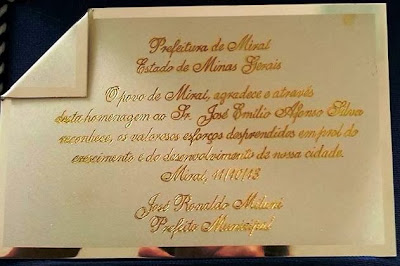 Prefeitura de Miraí
Estado de Minas Gerais
O povo de Miraí, agradece e através
desta homenagem ao Sr. José Emilio Afonso Silva
reconhece, os valorosos esforços desprendidos em prol do
crescimento e do desenvolvimento de nossa cidade.
Miraí, 11/10/13
José Ronaldo Milani
Prefeito Municipal